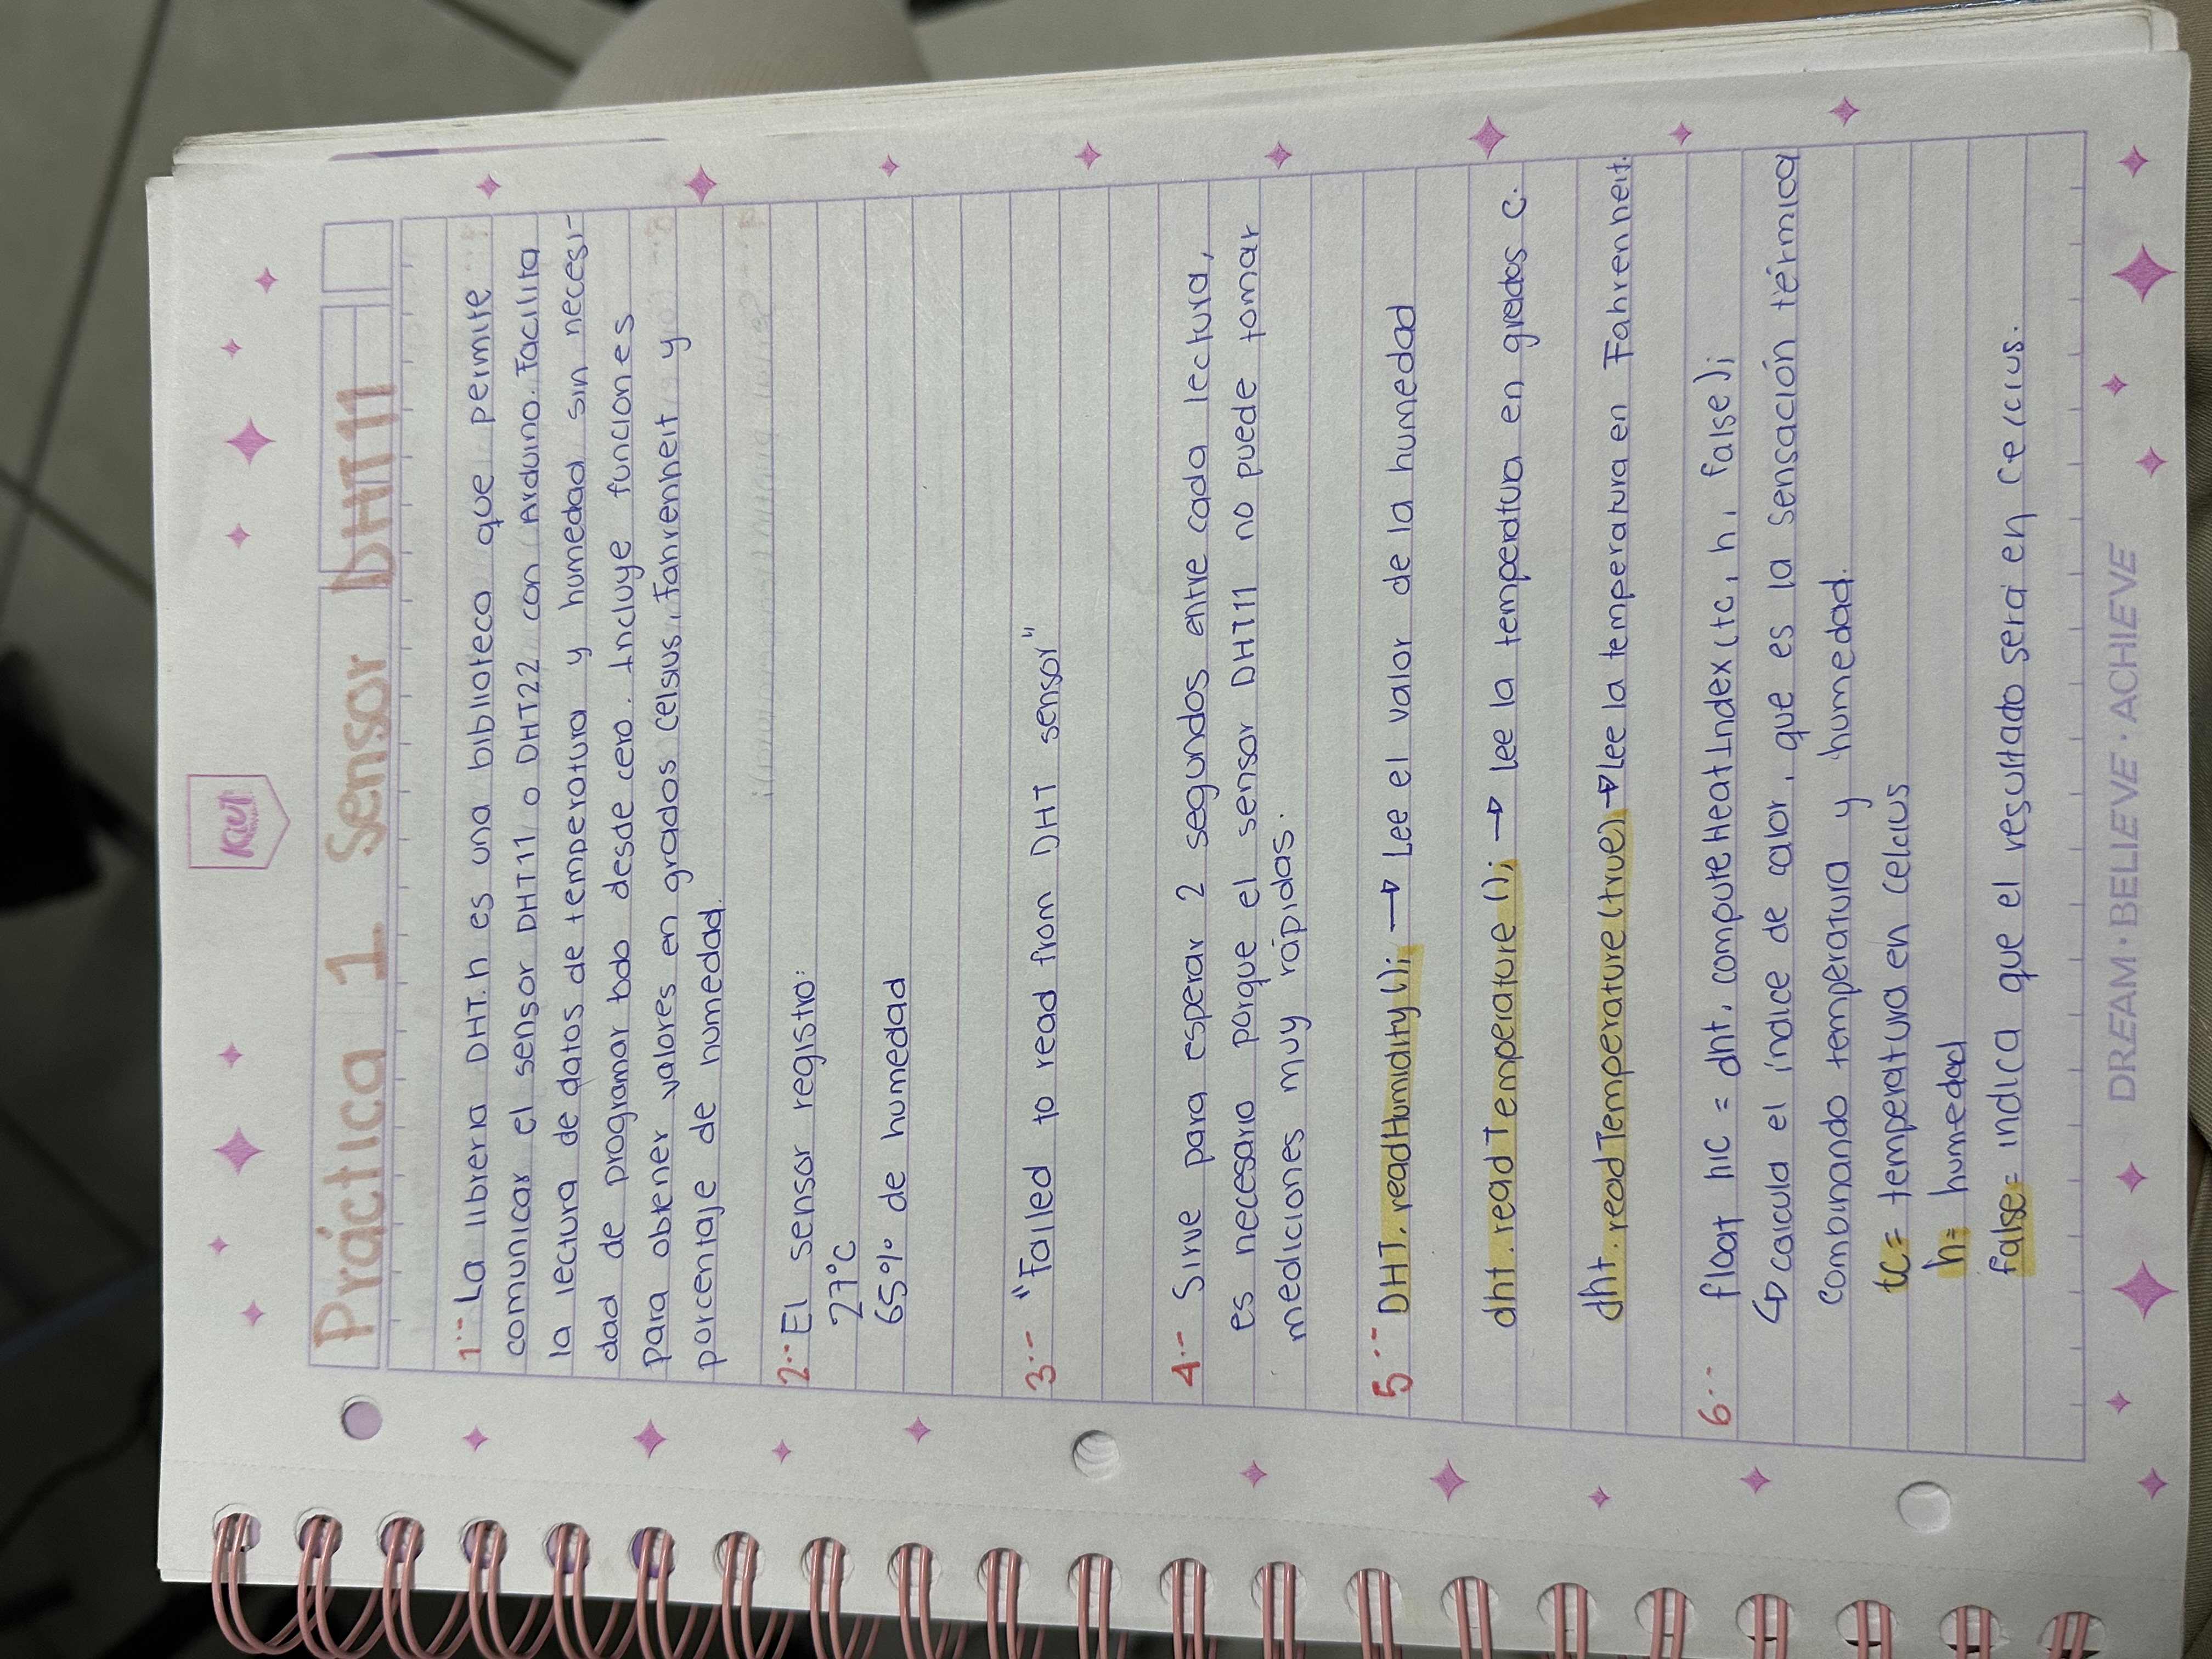 Kiut
Práctica 1 Sensor DHT11
1.- La libreria DHT.h es una biblioteca que permite
comunicar el sensor DHT11 o DHT22 con Arduino. Facilita
la lectura de datos de temperatura y humedad sin necesi-
dad de programar todo desde cero. Incluye funciones
para obtener valores en grados Celsius, Fahrenheit y
porcentaje de humedad.
2.- El sensor registro:
27°C
65% de humedad
3.- "Failed to read from DHT sensor"
4.- Sirve para esperar 2 segundos entre cada lectura,
es necesario porque el sensor DHT11 no puede tomar
mediciones muy rápidas.
5.- DHT.readHumidity(); → Lee el valor de la humedad
dht.readTemperature(); → lee la temperatura en grados C.
dht.readTemperature(true), → lee la temperatura en Fahrenheit.
6.- float hic = dht.computeHeatIndex(tc, h, false);
↳ calcula el indice de calor, que es la sensación térmica
combinando temperatura y humedad.
tc= temperatura en celcius
h= humedad
false= indica que el resultado será en celcius.
DREAM·BELIEVE·ACHIEVE